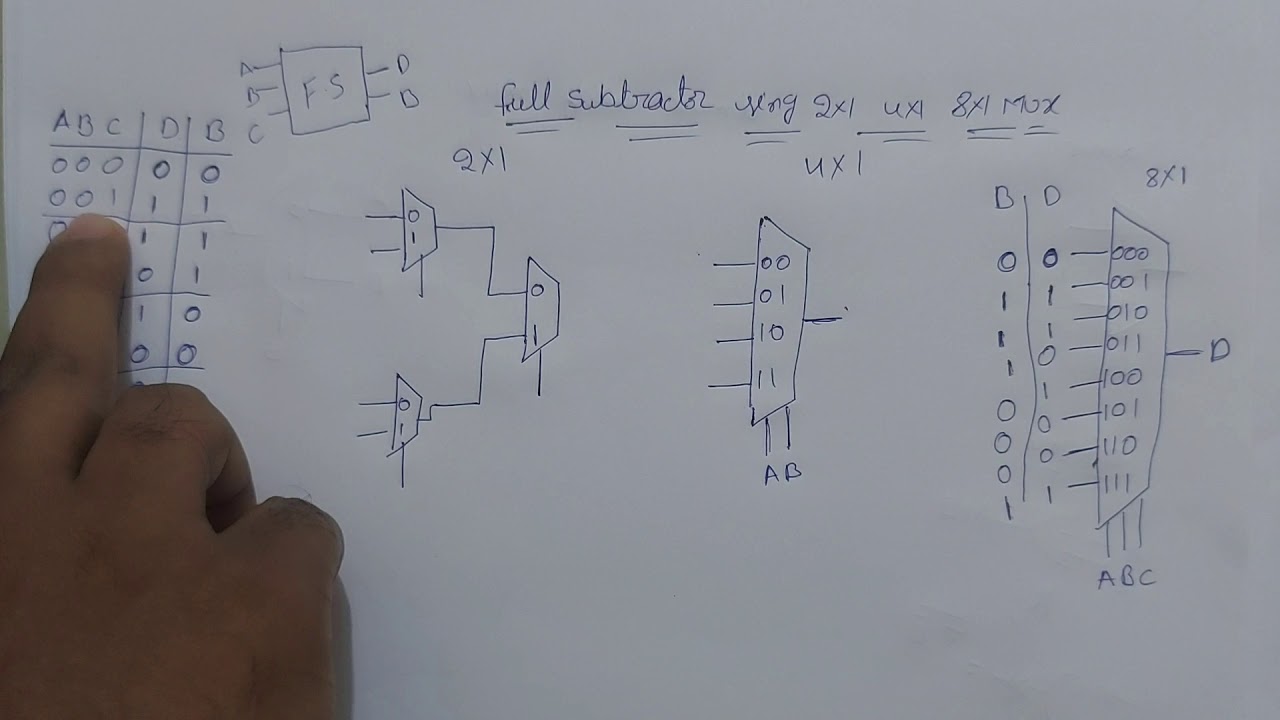 full subtractor using 2X1 4X1 8X1 MUX
A
B
C
F.S
D
B
A B C D B
0 0 0 0 0
0 0 1 1 1
0 1 1
0 1
1 0
0 0
2X1
0
1
0
1
0
1
4X1
00
01
10
11
A B
8X1
B D
0 0 000
1 1 001
1 1 010
1 0 011
0 1 100
0 0 101
0 0 110
1 1 111
D
A B C